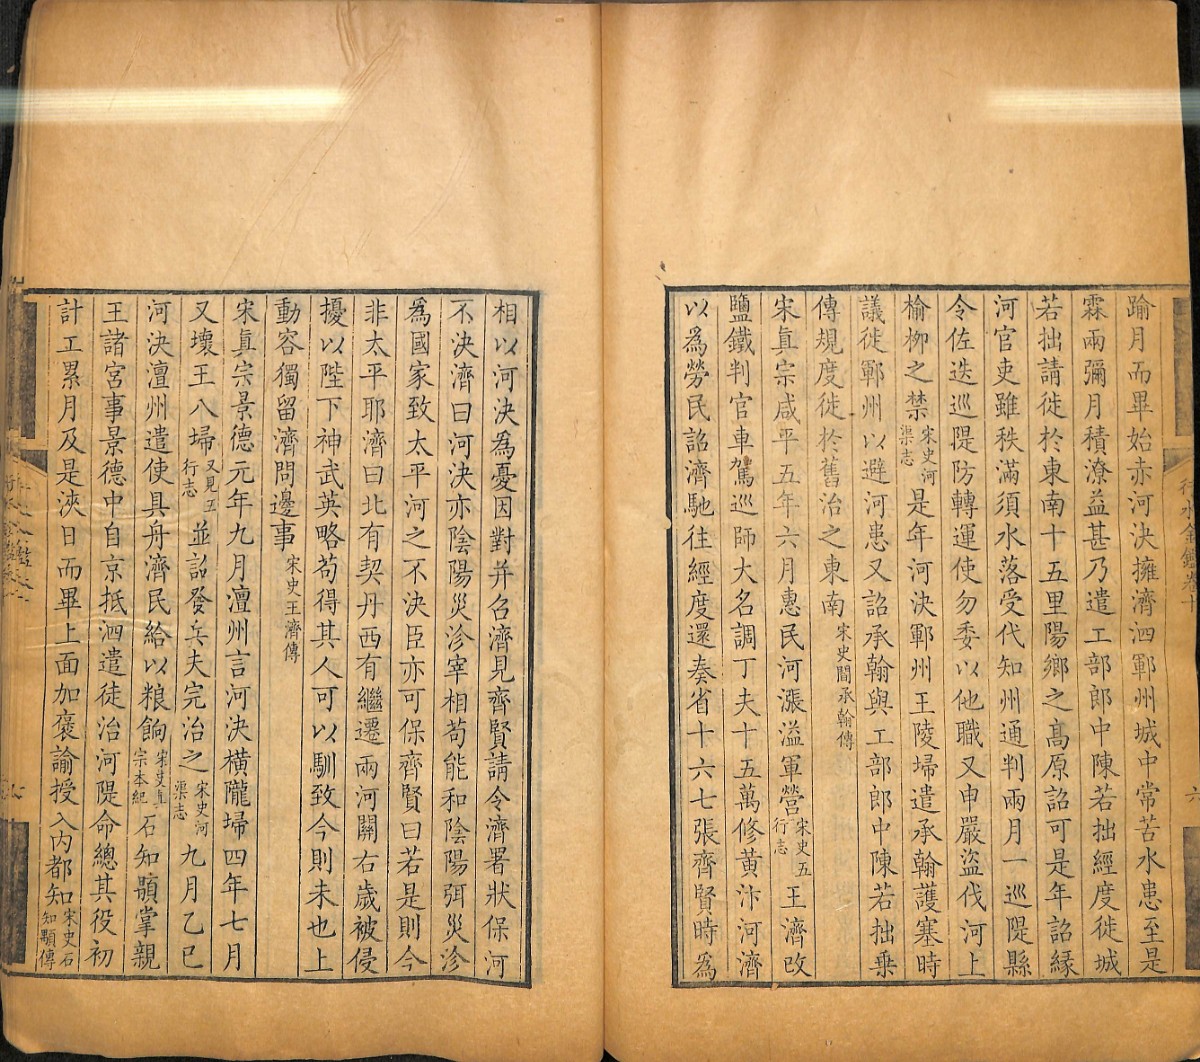 踰月而畢始赤河決擁濟泗鄆州城中常苦水患至是
霖雨彌月積潦益甚乃遣工部郎中陳若拙經度徙城
若拙請徙於東南十五里陽鄉之高原詔可是年詔緣
河官吏雖秩滿須水落受代知州通判兩月一巡隄縣
令佐迭巡隄防轉運使勿委以他職又申嚴盜伐河上
榆柳之禁宋史河渠志是年河決鄆州王陵埽遣承翰護塞時
議徙鄆州以避河患又詔承翰與工部郎中陳若拙乗
傳規度徙於舊治之東南宋史閻承翰傳
宋真宗咸平五年六月惠民河漲溢軍營宋史五行志王濟改
鹽鐵判官車駕巡師大名調丁夫十五萬修黃汴河濟
以為勞民詔濟馳往經度還奏省十六七張齊賢時為
相以河決為憂因對并召濟見齊賢請令濟署狀保河
不決濟曰河決亦陰陽災沴宰相苟能和陰陽弭災沴
為國家致太平河之不決臣亦可保齊賢曰若是則今
非太平耶濟曰北有契丹西有繼遷兩河關右歲被侵
擾以陛下神武英略苟得其人可以馴致今則未也上
動容獨留濟問邊事宋史王濟傳
宋真宗景德元年九月澶州言河決橫隴埽四年七月
又壞王八埽又見五行志並詔發兵夫完治之宋史河渠志九月乙巳
河決澶州遣使具舟濟民給以粮餉宋史真宗本紀石知顒掌親
王諸宮事景德中自京抵泗遣徒治河隄命總其役初
計工累月及是浹日而畢上面加褒諭授入內都知宋史石知顒傳
行水金鑑卷十
六